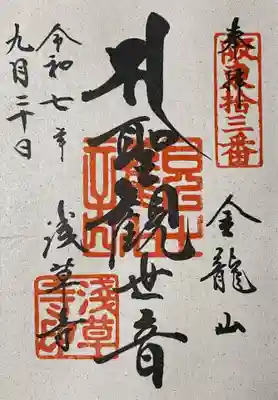 奉拝
坂東拾三番
金龍山
聖観世音
浅草寺
淺草寺印
令和七年
九月二十日